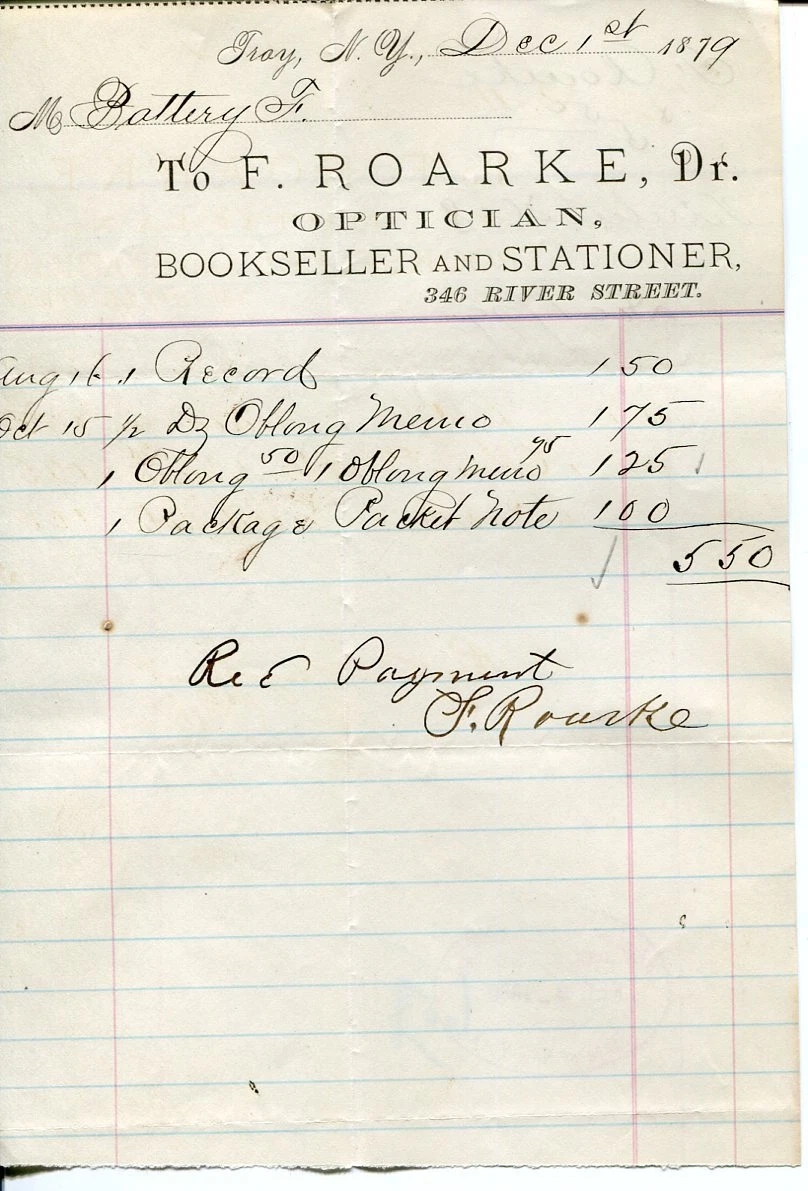 Troy, N. Y., Dec 1st 1879
M Battery F.
To F. ROARKE, Dr.
OPTICIAN,
BOOKSELLER AND STATIONER,
346 RIVER STREET.
Aug 16 1 Record 1 50
Oct 15 1/2 Dz Oblong Memo 1 75
1 Oblong 50 1 Oblong Memo 75 1 25
1 Package Packet Note 1 00
5 50
Rec Payment
F. Roarke